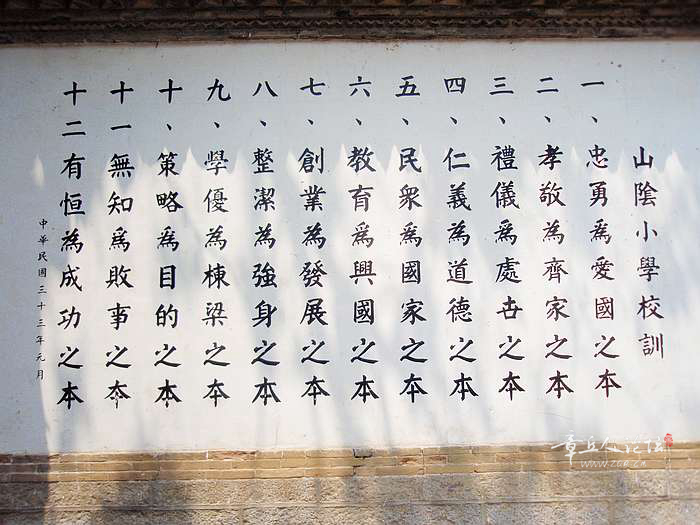 山陰小學校訓
一、忠勇爲愛國之本
二、孝敬為齊家之本
三、禮儀爲處世之本
四、仁義為道德之本
五、民衆爲國家之本
六、教育爲興國之本
七、創業為發展之本
八、整潔為強身之本
九、學優為棟梁之本
十、策略為目的之本
十一無知爲敗事之本
十二有恒為成功之本
中華民國三十三年元月
章丘人论坛